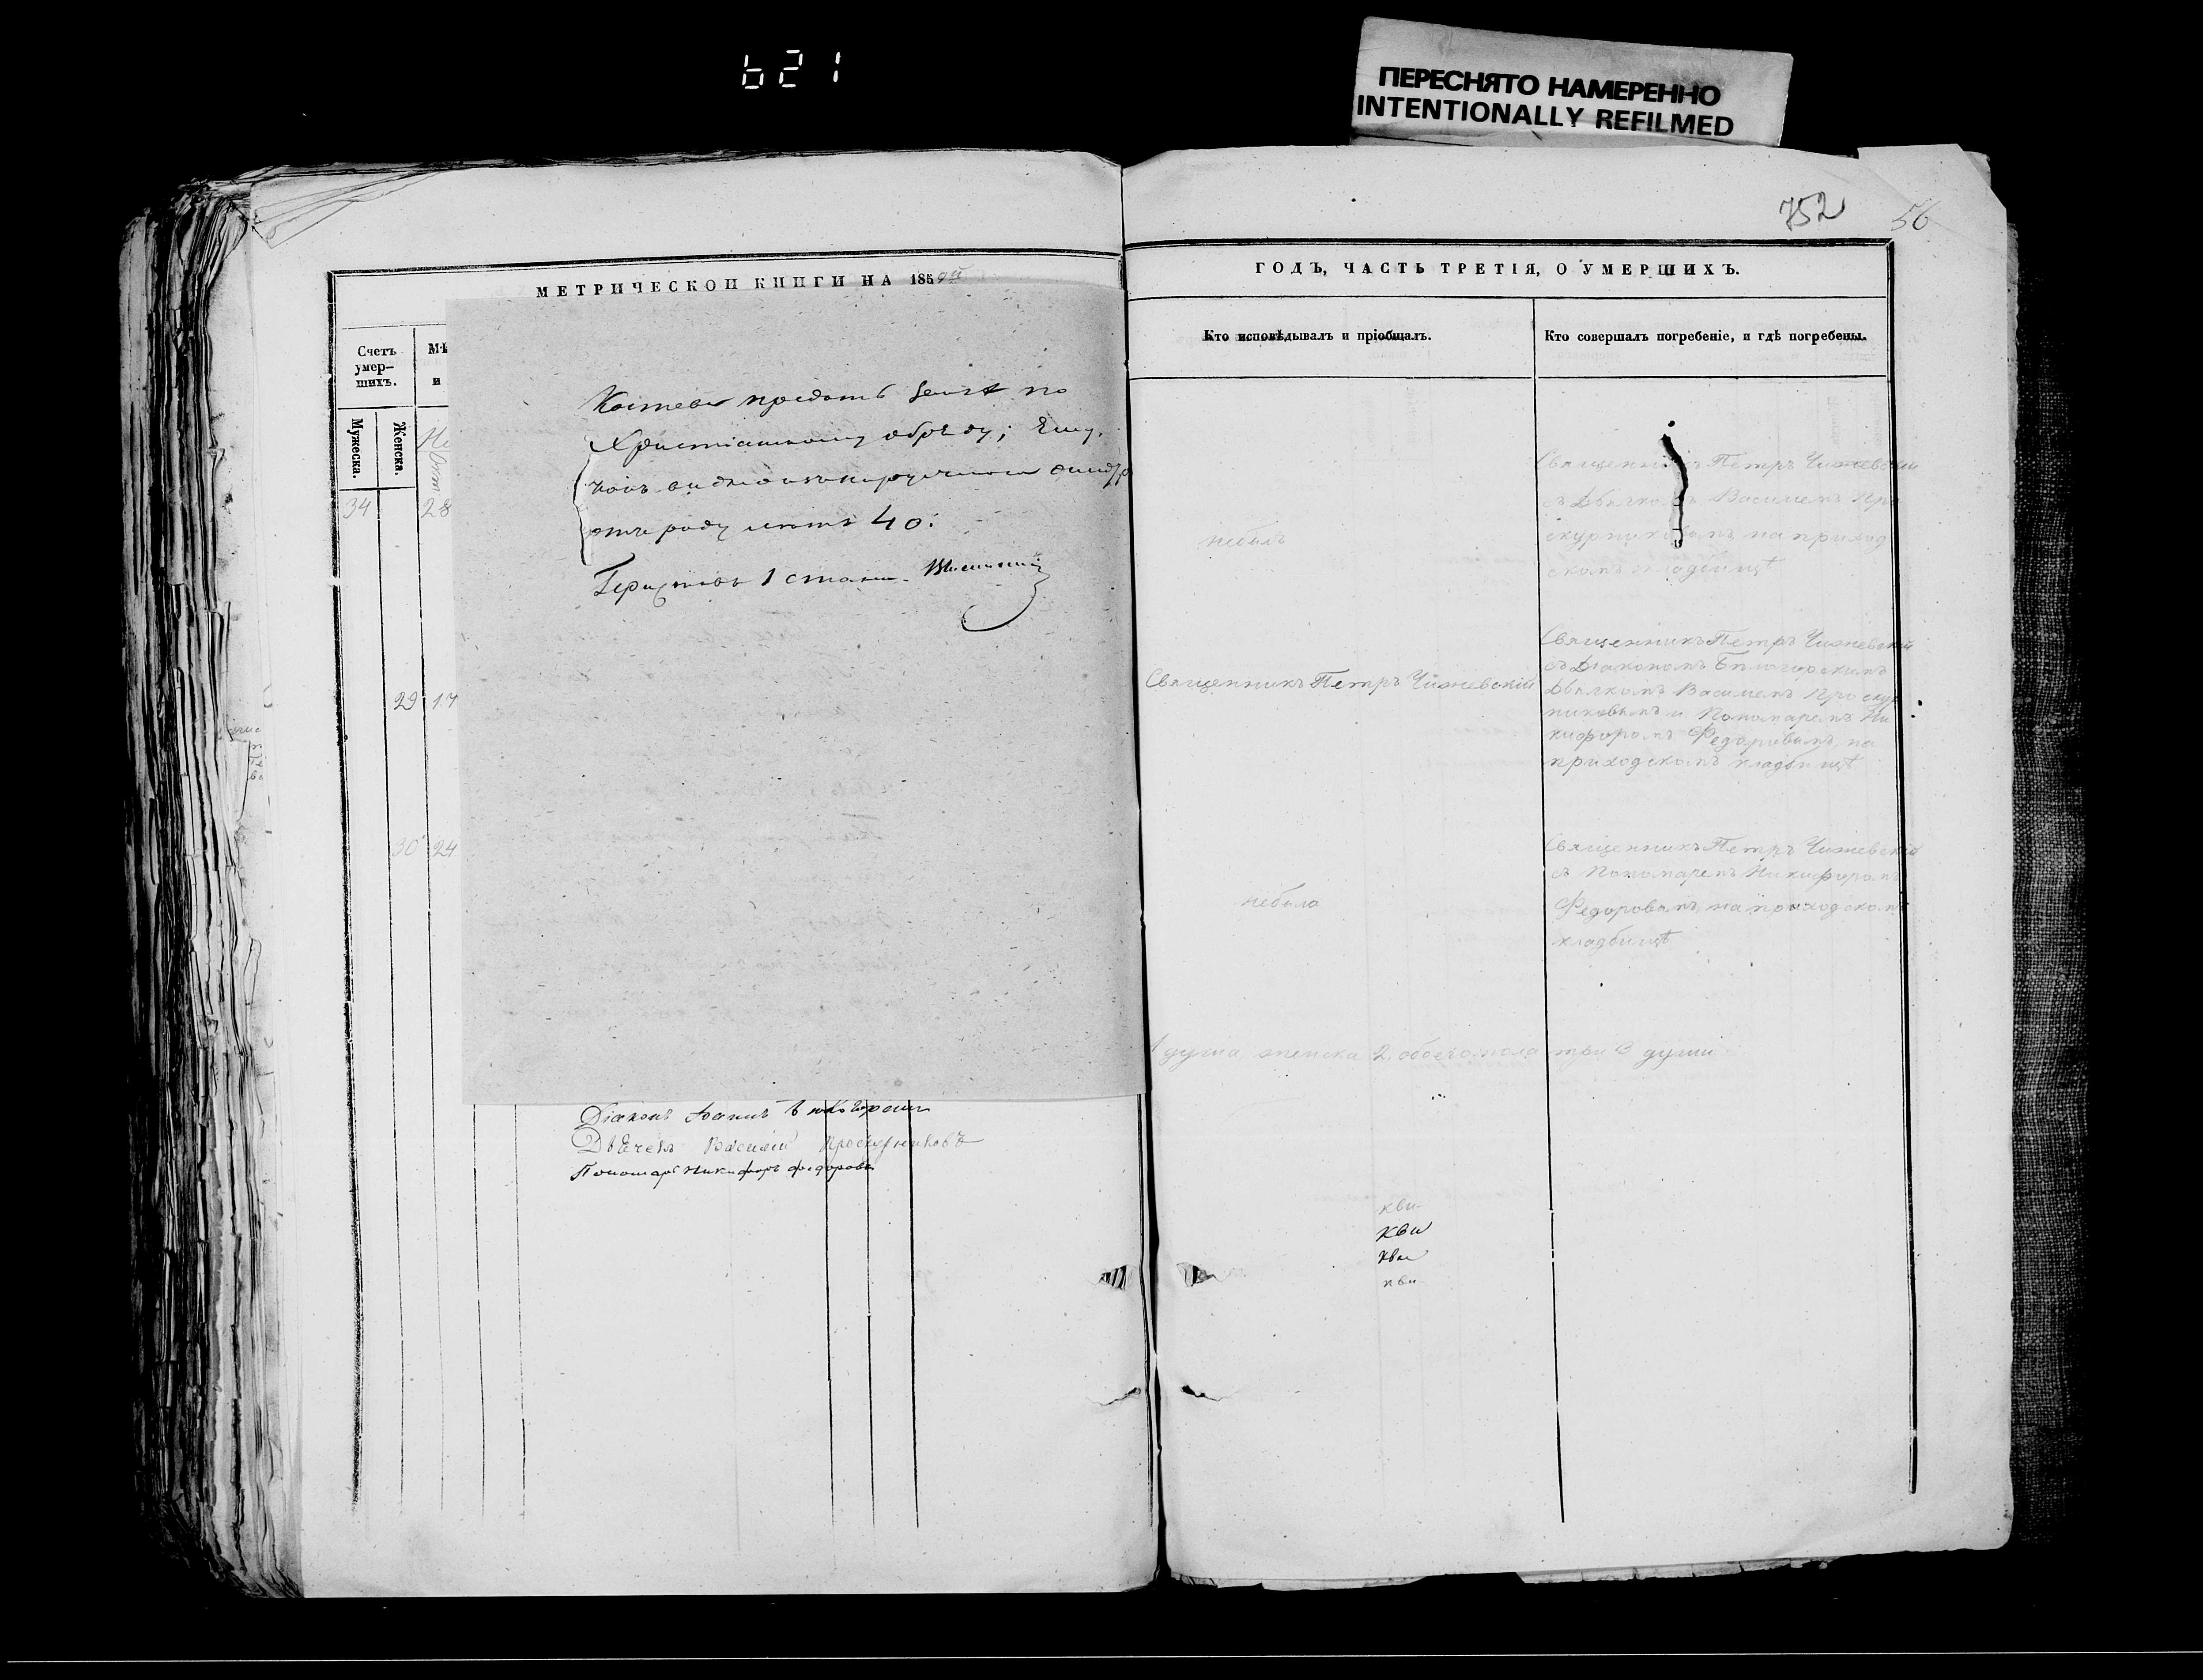 621
ПЕРЕСНЯТО НАМЕРЕННО
INTENTIONALLY REFILMED
752 56
МЕТРИЧЕСКОЙ КНИГИ НА 1859й
Счетъ
умер-
шихъ.
Мѣ
и
Мужеска.
Женска.
34 28
29 17
30 24
предать земле по
Христіанскому обряду; Ему,
отъ роду летъ 40.
1 стана
Діаконъ
Дьячекъ Василій Проскурниковъ
Пономарь Никифоръ Федоровъ
ГОДЪ, ЧАСТЬ ТРЕТІЯ, О УМЕРШИХЪ.
Кто исповѣдывалъ и пріобщалъ.
Кто совершалъ погребеніе, и гдѣ погребены.
небылъ
Священникъ Петръ Чижевскій
съ Дьячкомъ Василіемъ Про
скурниковымъ на приход
скомъ кладбищѣ
Священникъ Петръ Чижевскій
Священникъ Петръ Чижевскій
съ Діакономъ
Дьячкомъ Василіемъ Проскур
никовымъ и Пономаремъ Ни
кифоромъ Федоровымъ, на
приходскомъ кладбищѣ
небыла
Священникъ Петръ Чижевскій
съ Пономаремъ Никифоромъ
Федоровымъ, на приходскомъ
кладбищѣ
1 душа, женска 2, обоего пола три 3 души
кви
кви
кви
кви